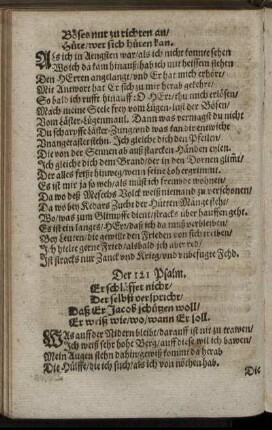 Böses nur zu richten an/
Hüte/wer sich hüten kan.
Als ich in Aengsten war/als ich nicht konnte sehen
Wo ich da kam hinauß/hab ich mit heissem stehen
Den HErren angelangt/und Er hat mich erhört/
Mit Antwort hat Er sich zu mir herab gekehrt/
So bald ich rufft hinauff: O HErr/thu mich erlösen/
Mach meine Seele frey vom Lügen-lust der Bösen/
Vom Läster-Lügenmaul. Dann was vermagst du nicht
Du scharpffe Läster-Zung/und was kan dir
Unangetastet stehn. Ich gleiche dich den Pfeilen/
Die von der Sennen ab auß starcken Händen eilen.
Ich gleiche dich dem Brand/der in den Dornen glimt/
Der alles frißt hinweg/wenn seine Loh ergrimmt.
Es ist mir ja so weh/als müst ich fremde wohnen/
Da wo deß Mesechs Volck weiß niemand zu verschonen/
Da wo bey Kedars Zucht der Hütten Mänge steht/
Wo/was zum Glimpffe dient/stracks über hauffen geht.
Es ist ein langes/HErr/daß ich da muß verbleiben/
Bey Leuten/die gewillt den Frieden von sich treiben/
Ich hielte gerne Fried/alsbald ich aber red/
Ist stracks nur Zanck und Krieg/und unbefugte Fehd.
Der 121 Psalm.
Er schläffet nicht/
Der selbst verspricht/
Daß Er Jacob schützen woll/
Er weiß wie/wo/wann Er soll.
Was auff der Nidern bleibt/darauff ist nit zu trawen/
Ich weiß sehr hohe Berg/auff diese wil ich bawen/
Mein Augen stehn dahin/gewiß kommt da herab
Die Hülffe/die ich such/als ich von nöthen hab.
Die